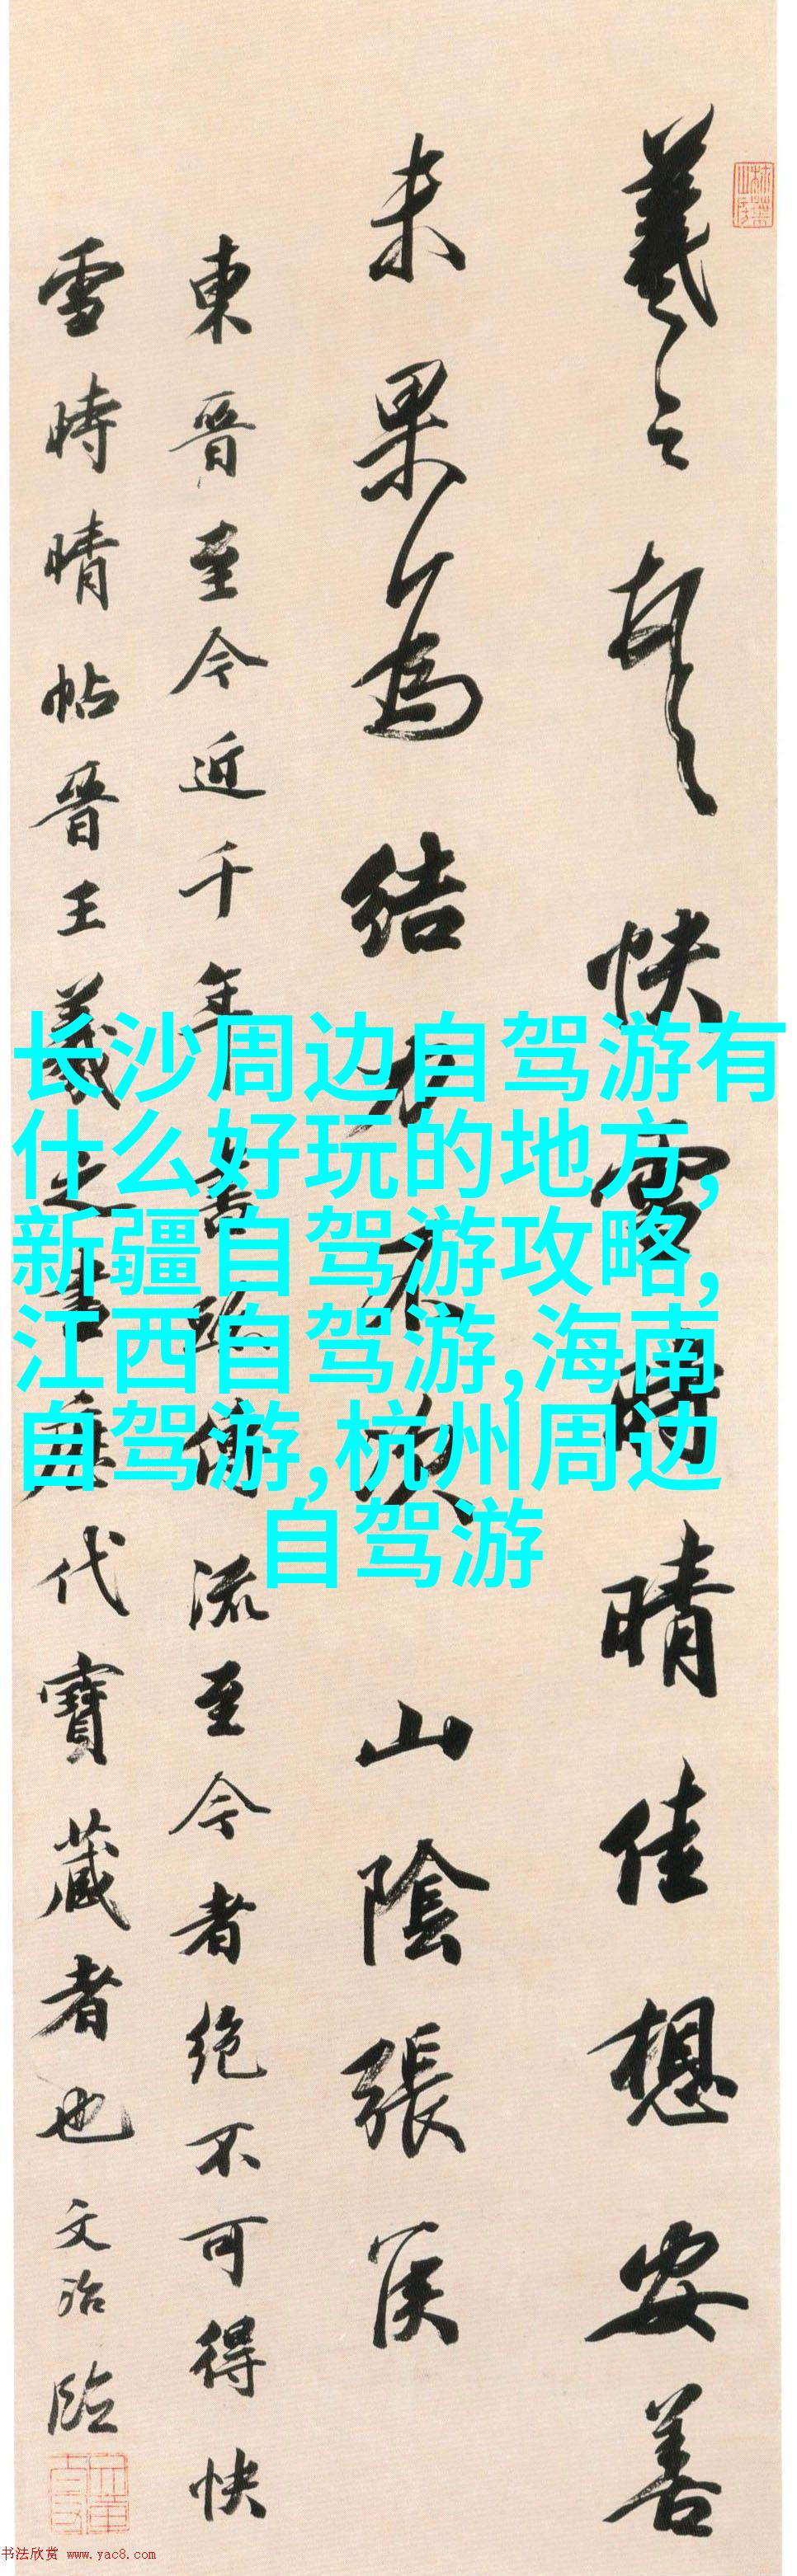 羲之頓首快雪時晴佳想安善
未果為結力不次山陰張侯
東晉至今近千年書跡傳流至今者絕不可得快
雪時晴帖晉王羲之書歷代寶藏者也文治臨
长沙周边自驾游有
什么好玩的地方,
新疆自驾游攻略,
江西自驾游,海南
自驾游,杭州周边
自驾游
书法欣赏 www.yac8.com